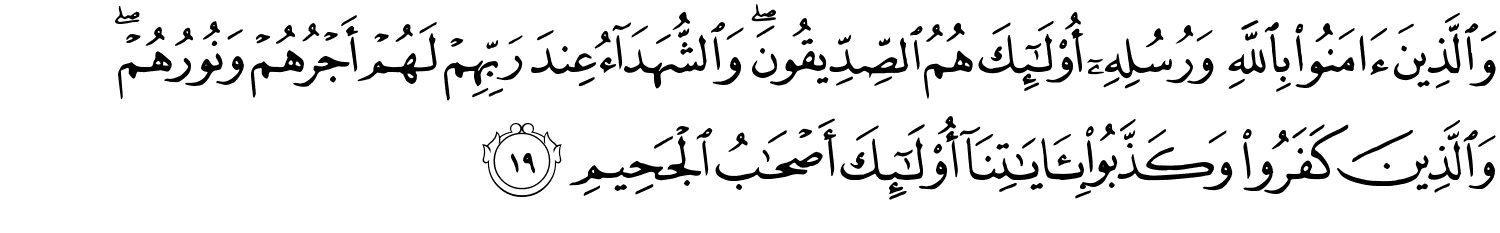 وَٱلَّذِينَ ءَامَنُوا۟ بِٱللَّهِ وَرُسُلِهِۦٓ أُو۟لَـٰٓئِكَ هُمُ ٱلصِّدِّيقُونَ ۖ وَٱلشُّهَدَآءُ عِندَ رَبِّهِمْ لَهُمْ أَجْرُهُمْ وَنُورُهُمْ ۖ
وَٱلَّذِينَ كَفَرُوا۟ وَكَذَّبُوا۟ بِـَٔايَـٰتِنَآ أُو۟لَـٰٓئِكَ أَصْحَـٰبُ ٱلْجَحِيمِ ١٩